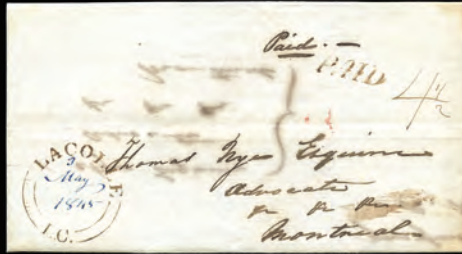 Paid.—
PAID
4 1/2
LACOLLE
3
May
1845
L.C.
Thomas Nye Esquire
Advocate
&c &c &c
Montreal